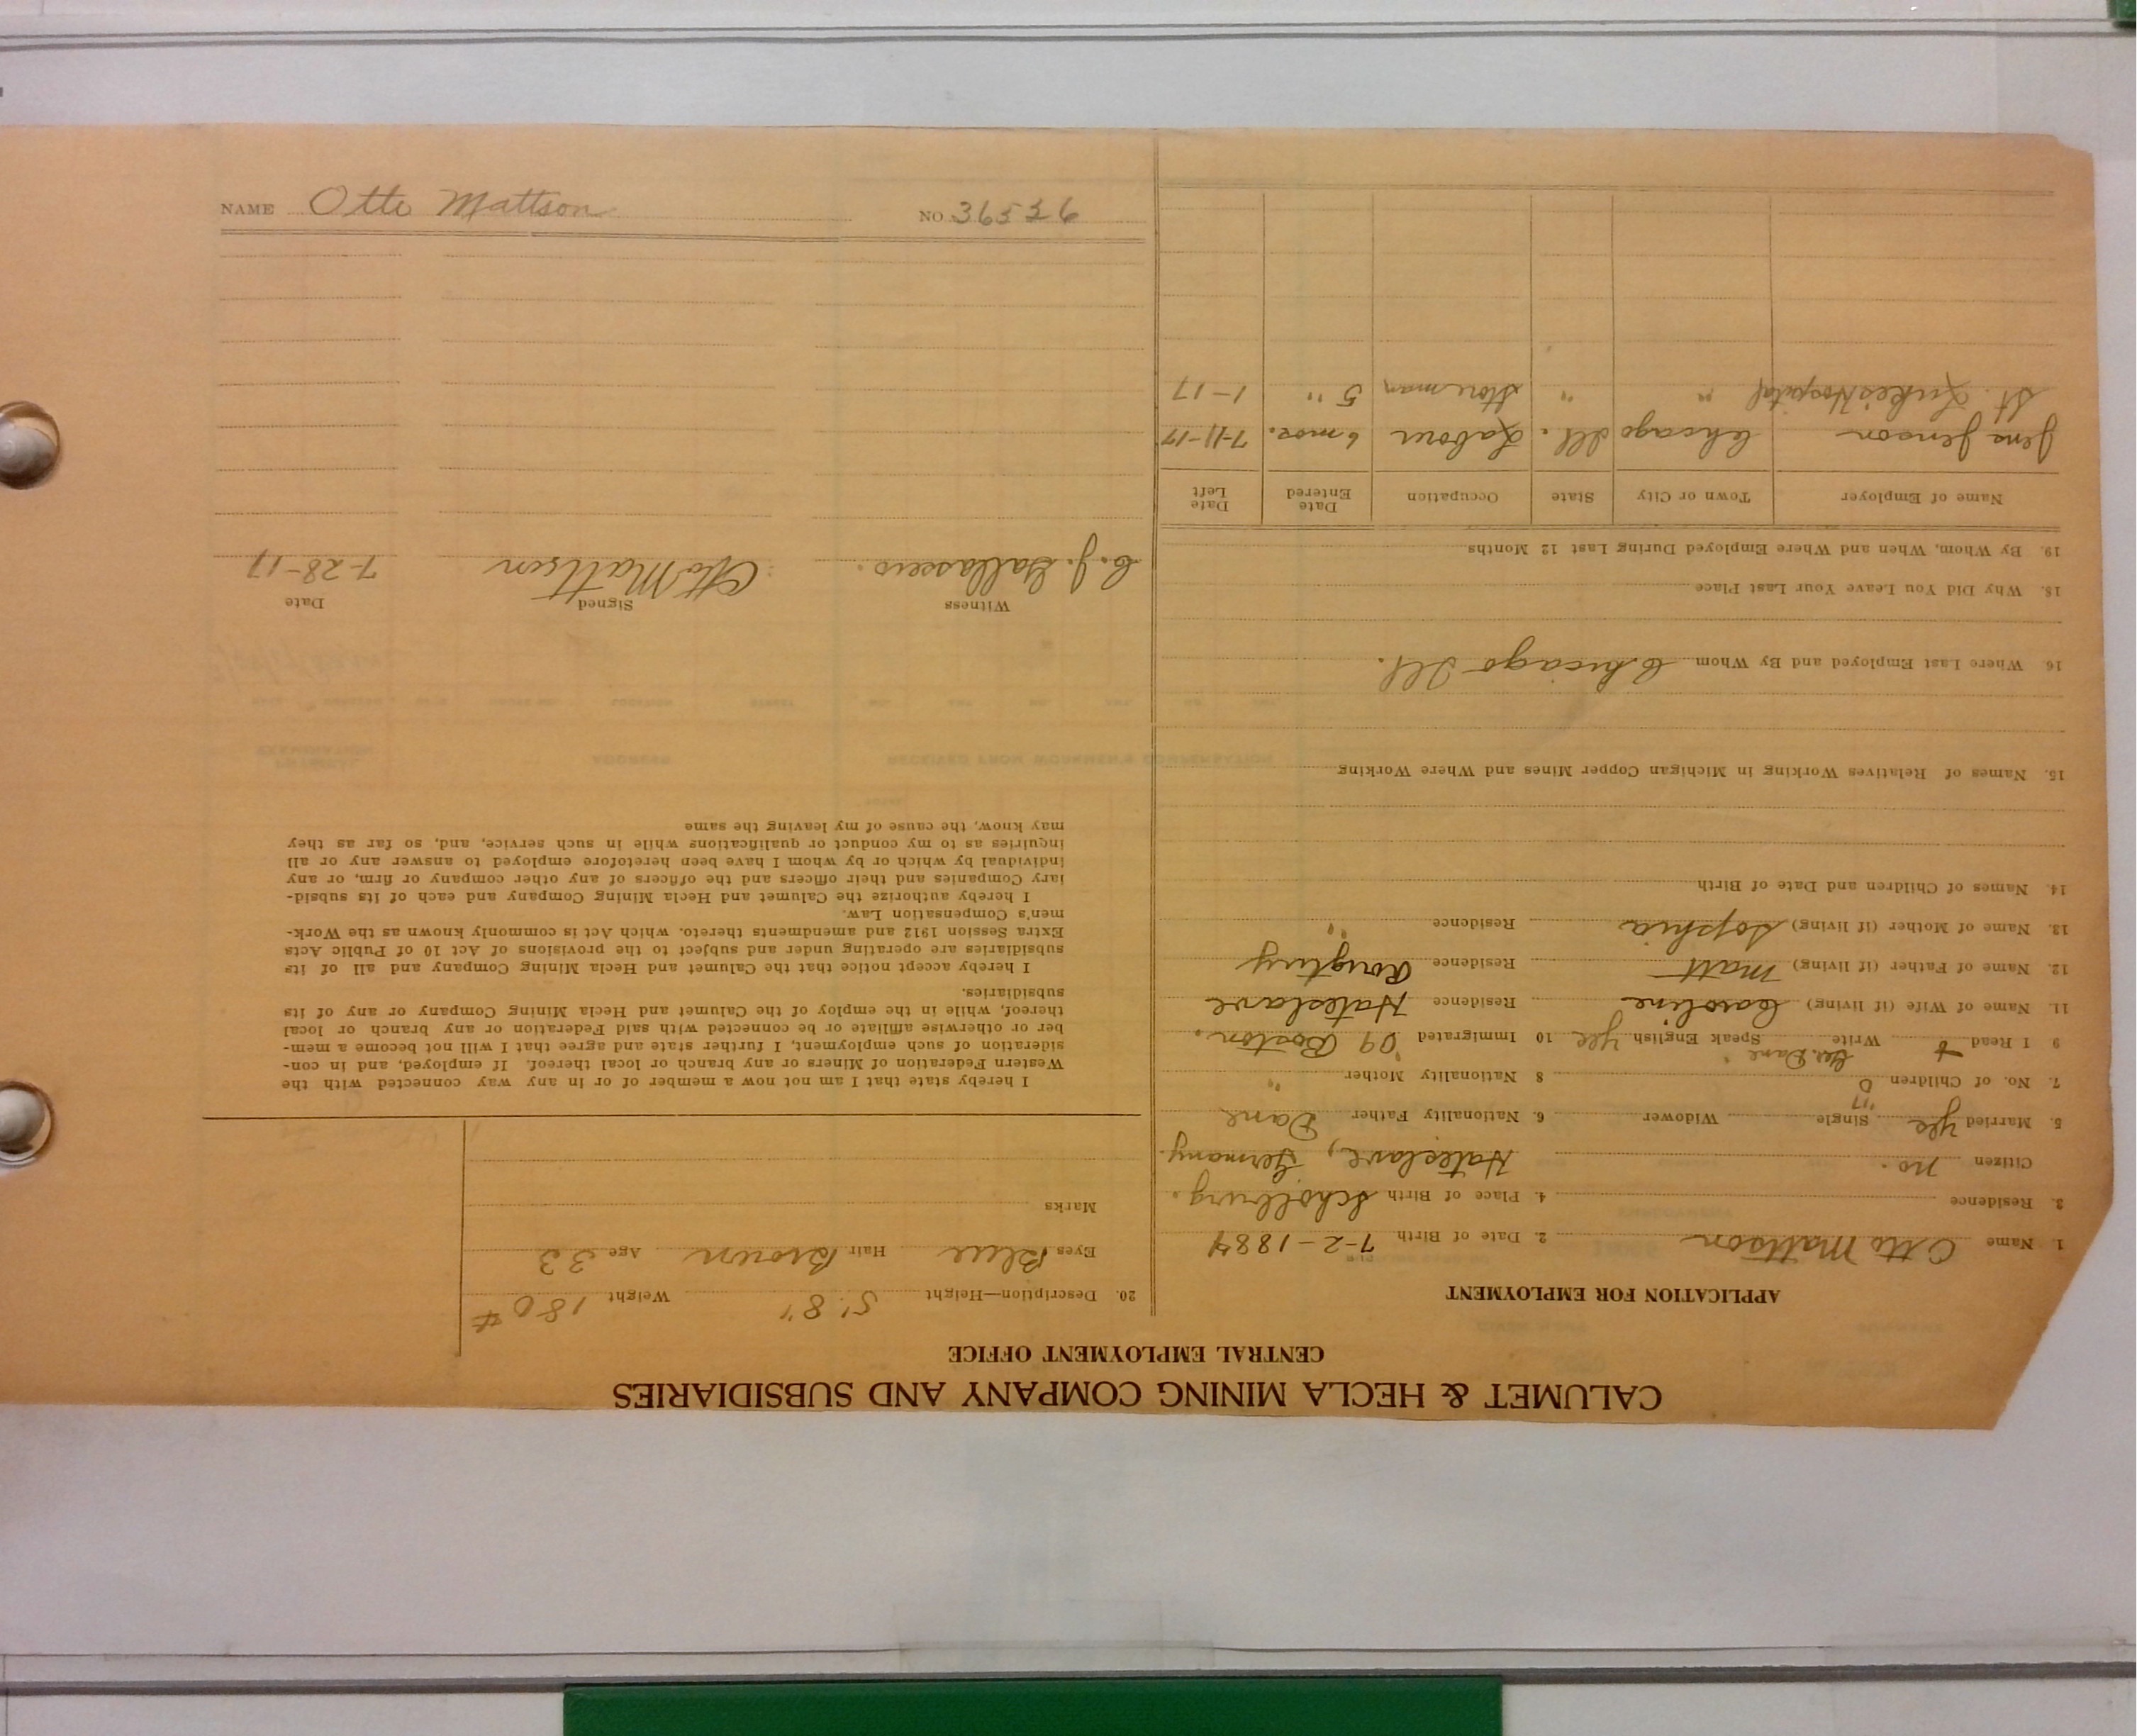 CALUMET & HECLA MINING COMPANY AND SUBSIDIARIES
CENTRAL EMPLOYMENT OFFICE
APPLICATION FOR EMPLOYMENT
1. Name Otto Mattson 2. Date of Birth 7-2-1884
3. Residence 4. Place of Birth Schölburg.
Citizen no. Hateslave, Germany.
5. Married Yes Single "17 Widower 6. Nationality Father Dane
7. No. of Children 0 8 Nationality Mother "
9 I Read + Write Ger. Dane Speak English Yes 10 Immigrated '09 Boston.
11. Name of Wife (if living) Caroline Residence Hateslave
12. Name of Father (if living) Matt Residence
13. Name of Mother (if living) Sophia Residence "
14. Names of Children and Date of Birth
15. Names of Relatives Working in Michigan Copper Mines and Where Working
16. Where Last Employed and By Whom Chicago Ill.
18. Why Did You Leave Your Last Place
19. By Whom, When and Where Employed During Last 12 Months
Name of Employer Town or City State Occupation Date Entered Date Left
Jens Jenson Chicago Ill Ill. Labour 6 mos. 7-11-17
St. Luke's Hospital " " Storeman 5 " 1-17
20. Description—Height 5' 8" Weight 180 #
Eyes Blue Hair Brown Age 33
Marks
I hereby state that I am not now a member of or in any way connected with the
Western Federation of Miners or any branch or local thereof. If employed, and in con-
sideration of such employment, I further state and agree that I will not become a mem-
ber or otherwise affiliate or be connected with said Federation or any branch or local
thereof, while in the employ of the Calumet and Hecla Mining Company or any of its
subsidiaries.
I hereby accept notice that the Calumet and Hecla Mining Company and all of its
subsidiaries are operating under and subject to the provisions of Act 10 of Public Acts
Extra Session 1912 and amendments thereto. which Act is commonly known as the Work-
men's Compensation Law.
I hereby authorize the Calumet and Hecla Mining Company and each of its subsid-
iary Companies and their officers and the officers of any other company or firm, or any
individual by which or by whom I have been heretofore employed to answer any or all
inquiries as to my conduct or qualifications while in such service, and, so far as they
may know, the cause of my leaving the same
Witness Signed Date
C. J. Otto Mattson 7-28-17
NAME Otto Mattson NO. 36536